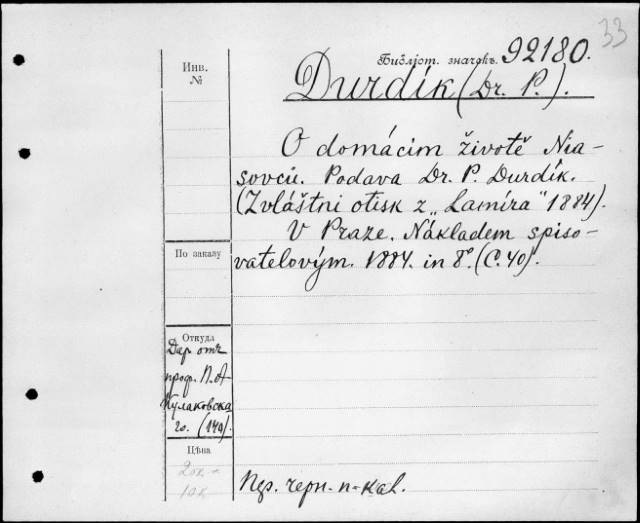 33
Библіот. значекъ. 92180.
Durdík (Dr. P.).
O domácim životě Nia-
sovců. Podava Dr. P. Durdík.
(Zvláštni otisk z „Lamíra" 1884).
V Praze. Nákladem spiso-
vatelovým. 1884. in 8°. (C. 40).
Инв.
№
По заказу
Откуда
Дар отъ
проф. П. А
Кулаковска
го. (140).
Цѣна
20к
10к
черн.